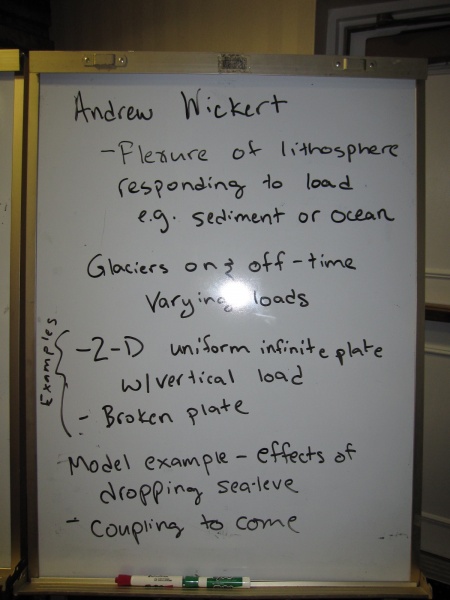 Andrew Wickert
- Flexure of lithosphere
responding to load
e.g. sediment or ocean
Glaciers on & off - time
varying loads
Examples
- 2-D uniform infinite plate
w/vertical load
- Broken plate
Model example - effects of
dropping sea-leve
- Coupling to come